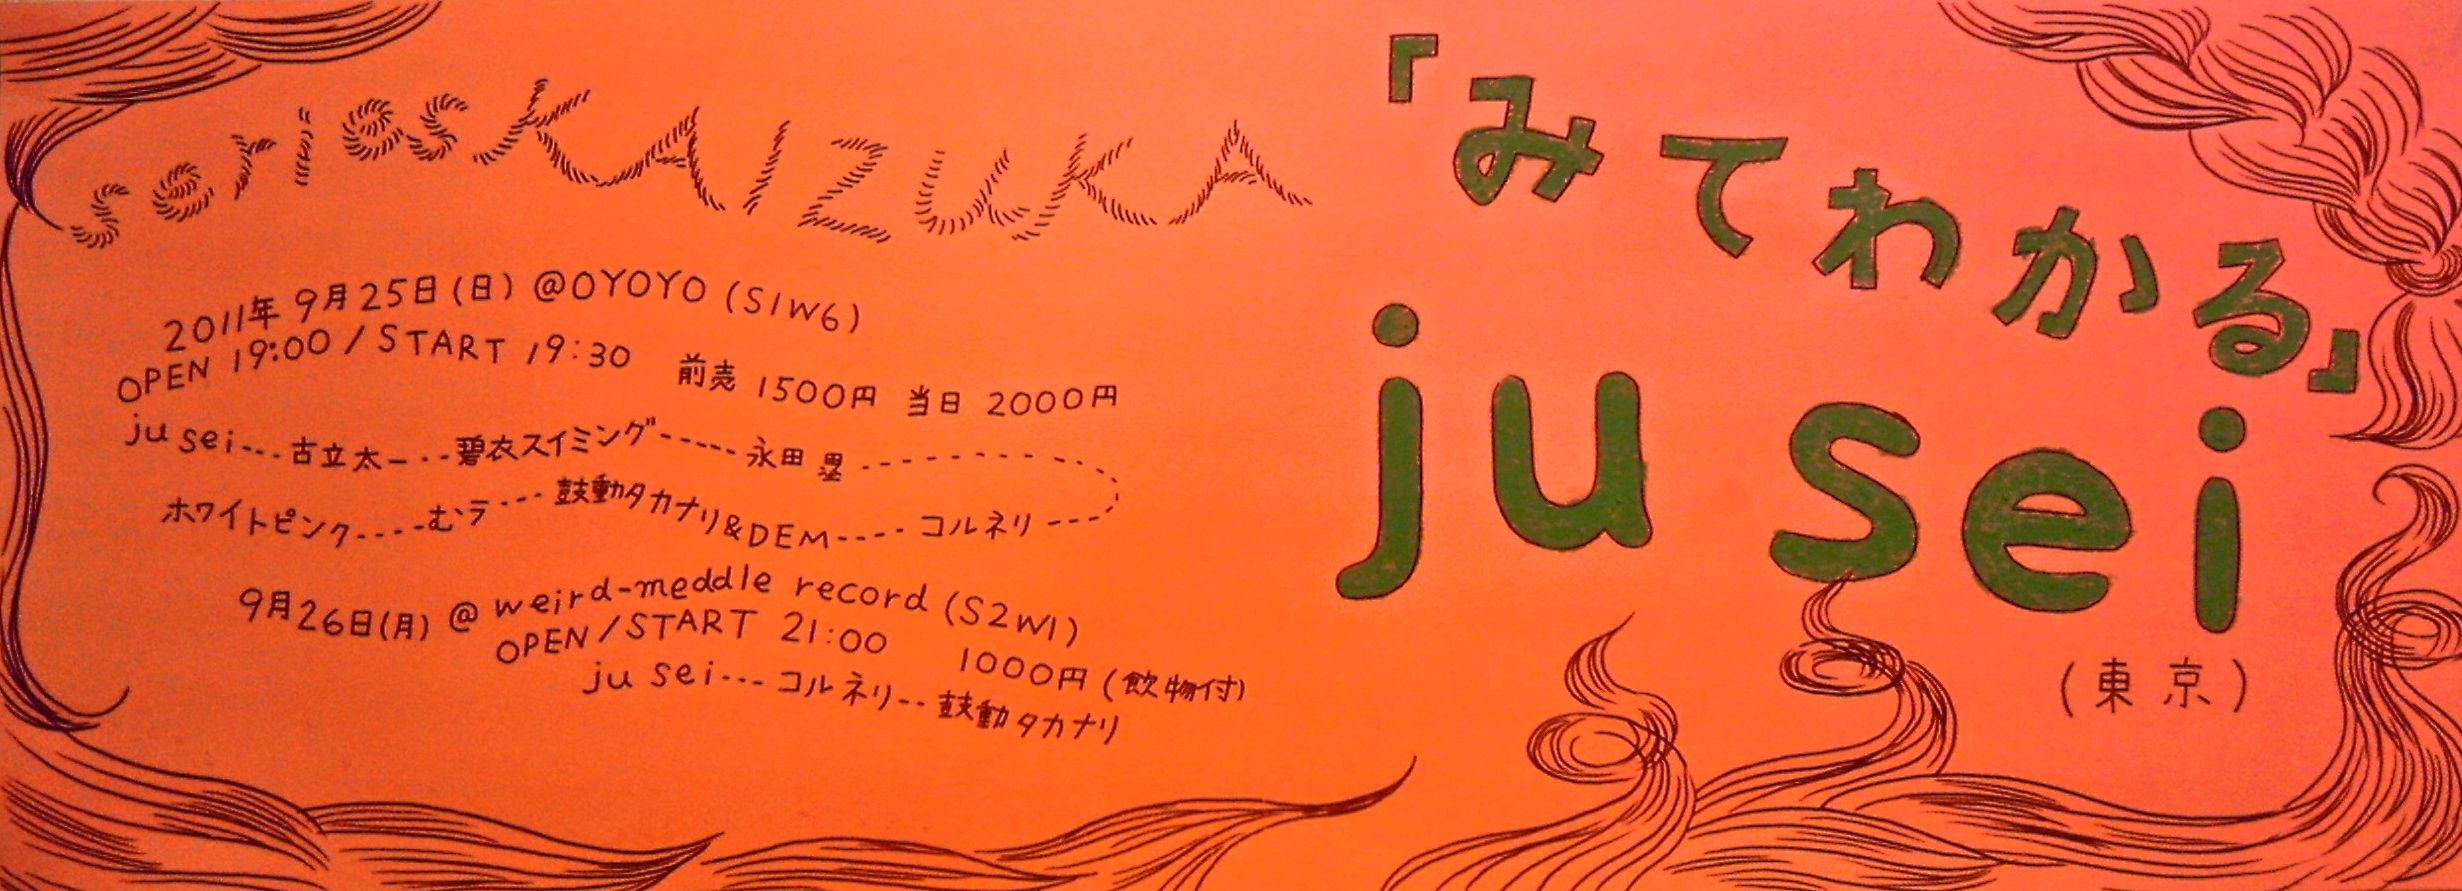 series KAIZUKA
2011年 9月25日(日) @OYOYO (S1W6)
OPEN 19:00 / START 19:30 前売 1500円 当日 2000円
ju sei... 古立太一... 碧衣スイミング----- 永田塁 --------
ホワイトピンク.....むラ---- 鼓動タカナリ&DEM----- コルネリ ----
9月26日(月) @ weird-meddle record (S2W1)
OPEN/START 21:00 1000円 (飲物付)
ju sei---- コルネリ--- 鼓動タカナリ
「みてわかる」
ju sei
(東京)